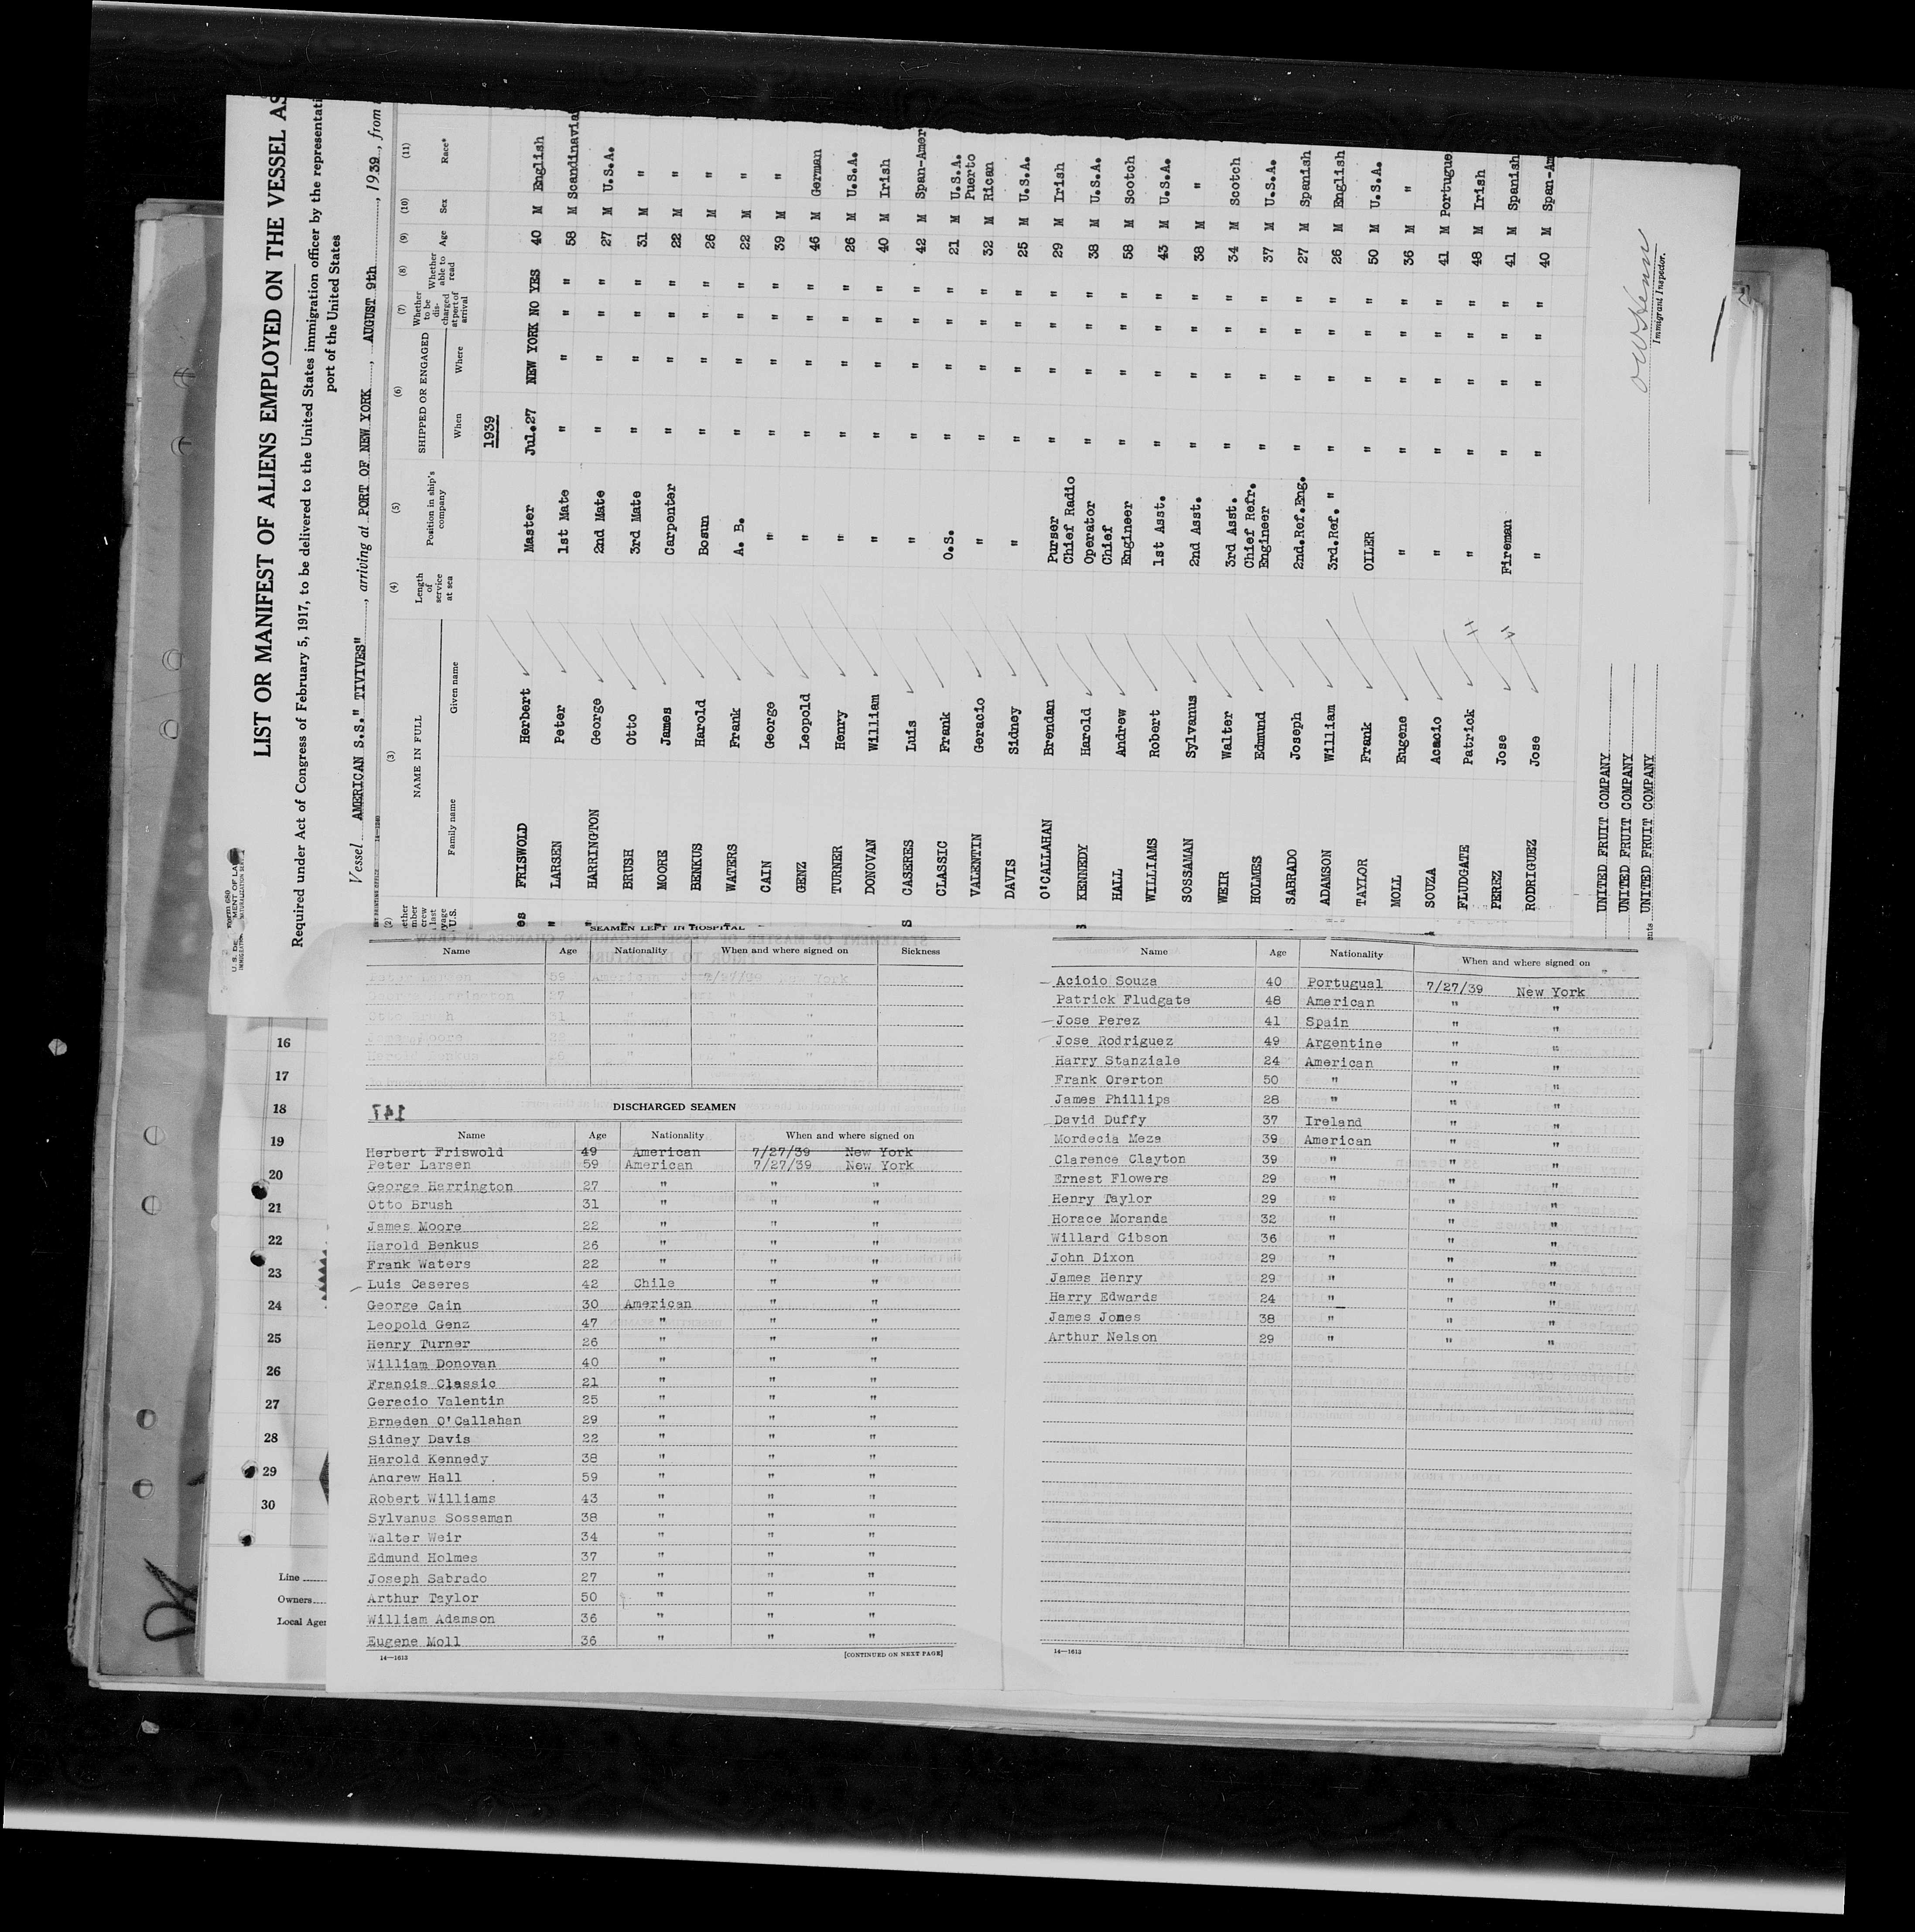 Form 680
U. S. DE MENT OF LAB
IMMIGRATION NATURALIZATION SERV
LIST OR MANIFEST OF ALIENS EMPLOYED ON THE VESSEL AS
Required under Act of Congress of February 5, 1917, to be delivered to the United States immigration officer by the representati
port of the United States
Vessel AMERICAN S.S." TIVIVES" , arriving at PORT OF NEW YORK , AUGUST 9th , 1939 , from
(2) (3) (4) (5) (6) (7) (8) (9) (10) (11)
NAME IN FULL Length of service at sea Position in ship's company SHIPPED OR ENGAGED Whether to be dis-charged at port of arrival Whether able to read Age Sex Race*
Family name Given name When Where
1939
es FRISWOLD Herbert Master Jul.27 NEW YORK NO YES 40 M English
" LARSEN Peter 1st Mate " " " " 58 M Scandinavia
" HARRINGTON George 2nd Mate " " " " 27 M U.S.A.
" BRUSH Otto 3rd Mate " " " " 31 M "
" MOORE James Carpenter " " " " 22 M "
" BENKUS Harold Bosun " " " " 26 M "
" WATERS Frank A. B. " " " " 22 M "
CAIN George " " " " " 39 M "
GENZ Leopold " " " " " 46 M German
TURNER Henry " " " " " 26 M U.S.A.
DONOVAN William " " " " " 40 M Irish
S CASERES Luis " " " " " 42 M Span-Amer
CLASSIC Frank O.S. " " " " 21 M U.S.A.
VALENTIN Geracio " " " " " 32 M Puerto Rican
DAVIS Sidney " " " " " 25 M U.S.A.
O'CALLAHAN Brendan Purser " " " " 29 M Irish
KENNEDY Harold Chief Radio Operator " " " " 38 M U.S.A.
HALL Andrew Chief Engineer " " " " 58 M Scotch
WILLIAMS Robert 1st Asst. " " " " 43 M U.S.A.
SOSSAMAN Sylvanus 2nd Asst. " " " " 38 M "
WEIR Walter 3rd Asst. " " " " 34 M Scotch
HOLMES Edmund Chief Refr. Engineer " " " " 37 M U.S.A.
SABRADO Joseph 2nd.Ref.Eng. " " " " 27 M Spanish
ADAMSON William 3rd.Ref. " " " " " 26 M English
TAYLOR Frank OILER " " " " 50 M U.S.A.
MOLL Eugene " " " " " 36 M "
SOUZA Acacio " " " " " 41 M Portugue
FLUDGATE Patrick " " " " " 48 M Irish
PEREZ Jose Fireman " " " " 41 M Spanish
RODRIGUEZ Jose " " " " " 40 M Span-Am
UNITED FRUIT COMPANY
UNITED FRUIT COMPANY
UNITED FRUIT COMPANY
Immigrant Inspector.
16
17
18
19
20
21
22
23
24
25
26
27
28
29
30
Line
Owners
Local Agen
SEAMEN LEFT IN HOSPITAL
Name Age Nationality When and where signed on Sickness
147
DISCHARGED SEAMEN
Name Age Nationality When and where signed on
Herbert Friswold 49 American 7/27/39 New York
Peter Larsen 59 American 7/27/39 New York
George Harrington 27 " " "
Otto Brush 31 " " "
James Moore 22 " " "
Harold Benkus 26 " " "
Frank Waters 22 " " "
Luis Caseres 42 Chile " "
George Cain 30 American " "
Leopold Genz 47 " " "
Henry Turner 26 " " "
William Donovan 40 " " "
Francis Classic 21 " " "
Geracio Valentin 25 " " "
Brneden O'Callahan 29 " " "
Sidney Davis 22 " " "
Harold Kennedy 38 " " "
Andrew Hall 59 " " "
Robert Williams 43 " " "
Sylvanus Sossaman 38 " " "
Walter Weir 34 " " "
Edmund Holmes 37 " " "
Joseph Sabrado 27 " " "
Arthur Taylor 50 " " "
William Adamson 36 " " "
Eugene Moll 36 " " "
14—1613 [CONTINUED ON NEXT PAGE]
Name Age Nationality When and where signed on
Acioio Souza 40 Portugual 7/27/39 New York
Patrick Fludgate 48 American " "
Jose Perez 41 Spain " "
Jose Rodriguez 49 Argentine " "
Harry Stanziale 24 American " "
Frank Orerton 50 " " "
James Phillips 28 " " "
David Duffy 37 Ireland " "
Mordecia Meza 39 American " "
Clarence Clayton 39 " " "
Ernest Flowers 29 " " "
Henry Taylor 29 " " "
Horace Moranda 32 " " "
Willard Gibson 36 " " "
John Dixon 29 " " "
James Henry 29 " " "
Harry Edwards 24 " " "
James Jones 38 " " "
Arthur Nelson 29 " " "
14—1613